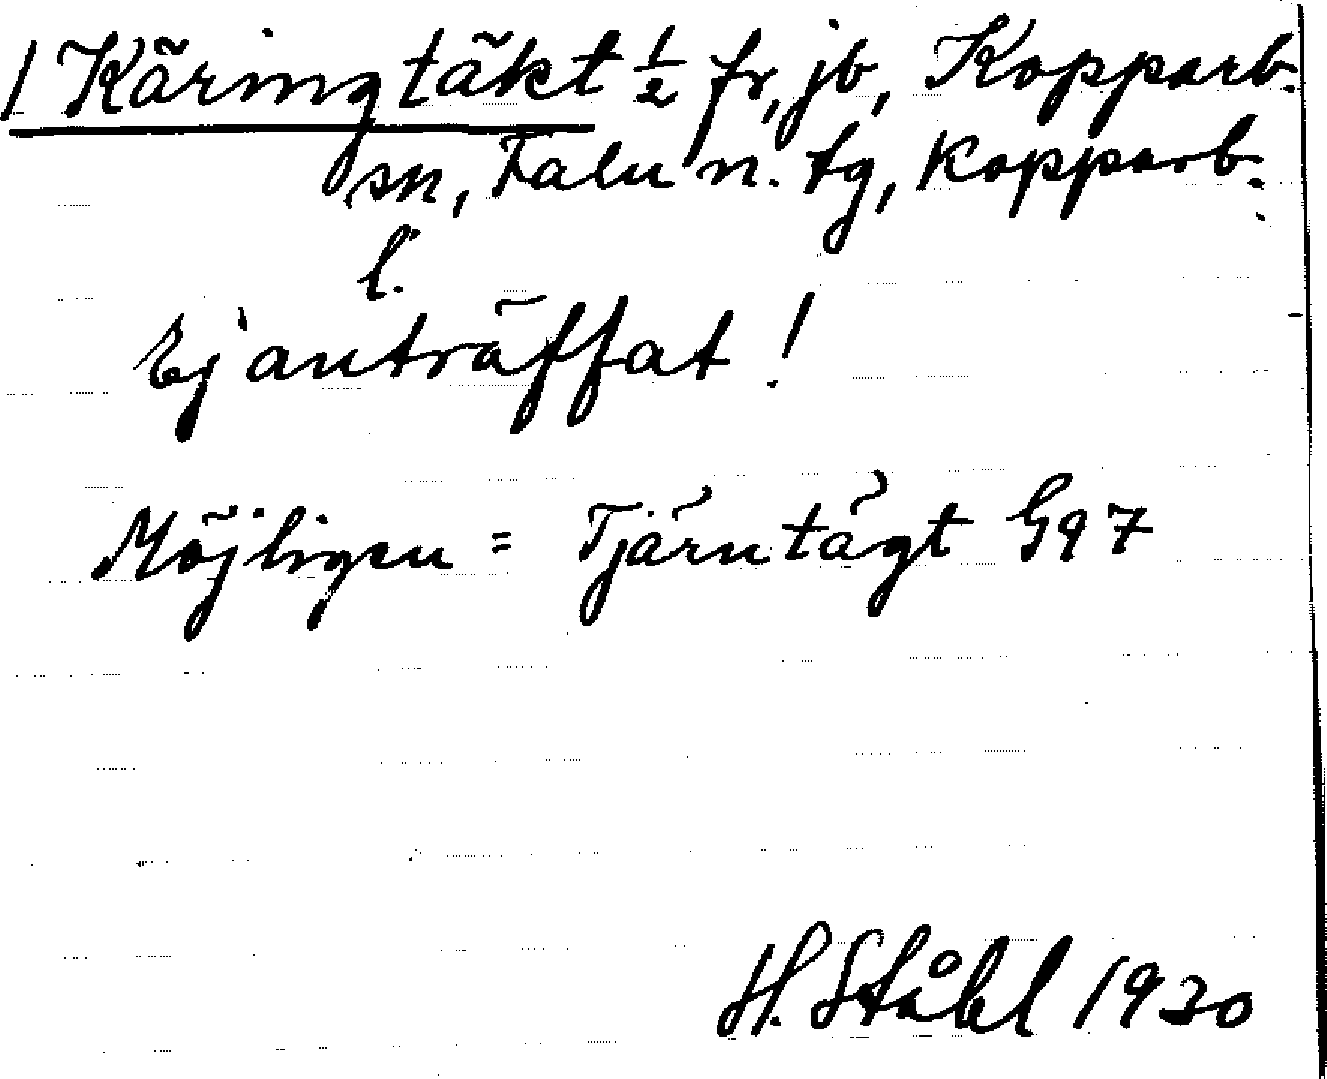 1 Käringtäkt ½ fr, jb, Kopparb.
sn, Falu n. tg, Kopparb.
l.
Ej anträffat!
Möjligen = Tjärntägt G97
H. Ståhl 1930